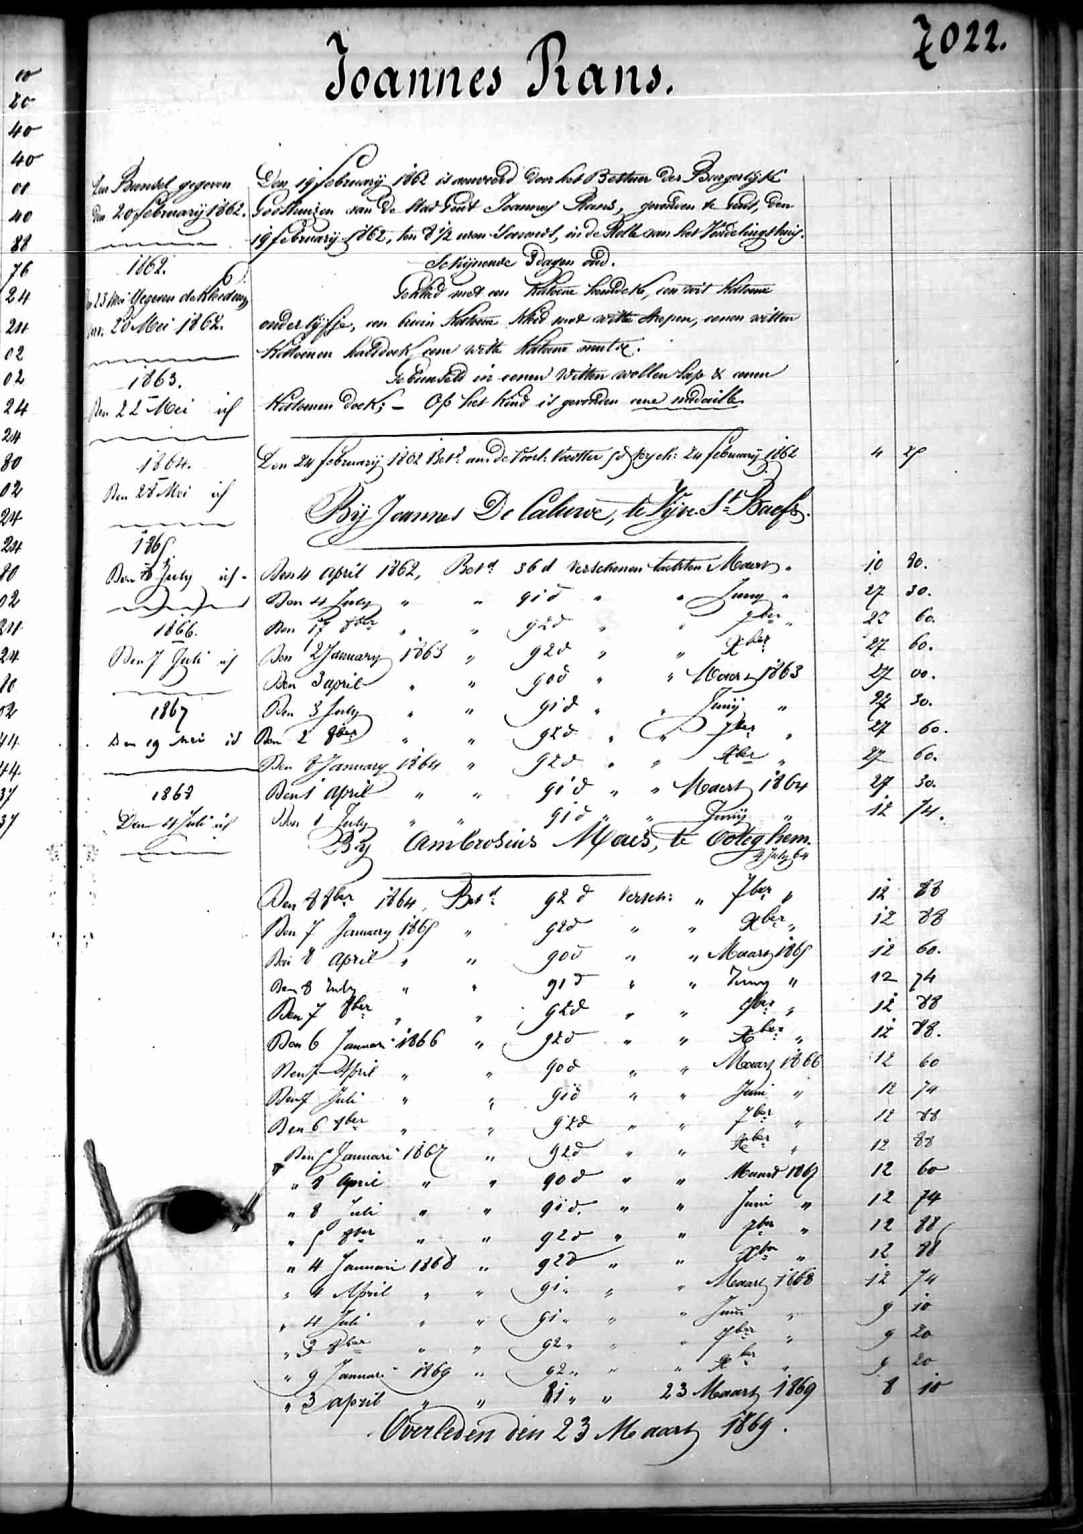 7022.
Joannes Rans.
Den Bundel gegeven
den 20 february 1862.
1862.
23 Mei Gegeven de kleedung
28 Mei 1862.
1863.
Den 22 Mei id
1864.
Den 28 Mei id
1865
Den 8 July id.
1866.
Den 7 Juli id
1867
Den 19 Mei id
1868
Den 4 Juli id
Den 19 february 1862 is aanveerd door het Bestuer der Burgerlijke
Godshuizen van de stad Gent Joannes Rans, gevonden te Gent, den
19 february 1862, ten 8 1/2 uren 's avonds, in de Rolle van het Vondelingshuis.
Schijnende 3 dagen oud.
Gekleed met een katoene hemdeke, een wit katoene
onderlijfje, een bruin katoene kleed met witte strepen, eenen witten
katoenen halsdoek, eene witte katoene mutse.
Gebunseld in eenen witten wollen lap & eenen
katoenen doek; – Op het kind is gevonden eene medaille.
Den 24 february 1862 Bet.d aan de Voorl. Voedster 5 d 24 february 1862 4 25
Bij Joannes De Caluwe, te Vyve St. Baefs.
Den 4 April 1862, Bet.d 36 d verschenen Maert " 10 80.
Den 4 July " " 91 d " " Juny " 27 30.
Den 17 8ber " " 92 d " " 7ber " 27 60.
Den 2 January 1863 " 92 d " " Xber 27 60.
Den 3 april " " 90 d " " Maert 1863 27 00.
Den 3 July " " 91 d " " Junij " 27 30.
Den 2 8ber " " 92 d " " 7ber " 27 60.
Den 8 January 1864 " 92 d " " Xber " 27 60.
Den 1 April " " 91 d " " Maert 1864 27 30.
Den 1 July " " 91 d " " Junij " 12 74.
Bij Ambrosius Maes, te Ooteghem.
4 July 64
Den 8 8ber 1864, Bet.d 92 d versch: " 7ber " 12 88
Den 7 January 1865 " 92 d " " Xber " 12 88
Den 8 April " " 90 d " " Maart 1865 12 60.
Den 8 July " " 91 d " " Juny " 12 74
Den 7 8ber " " 92 d " " 7ber " 12 88
Den 6 Januari 1866 " 92 d " " Xber " 12 88.
Den 7 April " " 90 d " " Maart 1866 12 60
Den 7 Juli " " 91 d " " Juni " 12 74
Den 6 8ber " " 92 d " " 7ber " 12 88
Den 5 Januari 1867 " 92 d " " Xber " 12 88
" 8 April " " 90 d " " Maart 1867 12 60
" 8 Juli " " 91 d. " " Juni " 12 74
" 5 8ber " " 92 d " " 7ber " 12 88
" 4 Januari 1868 " 92 d " " Xber " 12 88
" 4 April " " 91 " " " Maart 1868 12 74
" 4 Juli " " 91 " " " Juni " 9 10
" 3 8ber " " 92 " " " 7ber " 9 20
" 9 Januari 1869 " 92 " " " Xber " 9 20
" 3 april " " 81 " " 23 Maart 1869 8 10
Overleden den 23 Maart 1869.